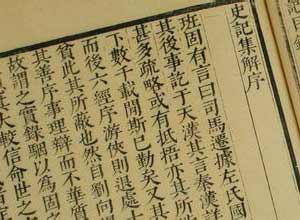 史記集解序
班固有言曰司馬遷據左氏國
其後事訖于天漢其言秦漢
甚多疏略或有抵捂亦其所
下數千載閒斯已勤矣又其
而後六經序游俠則退處士
貧此其所蔽也然自劉向
其善序事理辯而不華質
故謂之實錄駰以為固之
其大較信命世之